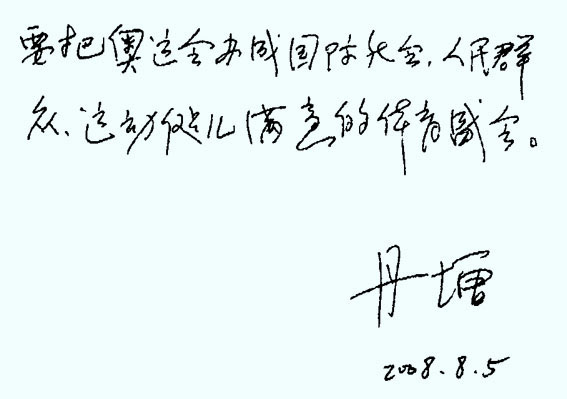 要把奥运会办成国际社会、人民群
众、运动健儿满意的体育盛会。
丹增
2008.8.5